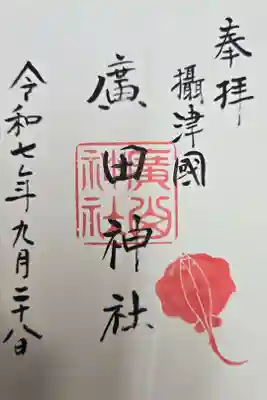 奉拝
攝津國
廣田神社
令和七年九月二十八日
廣田神社